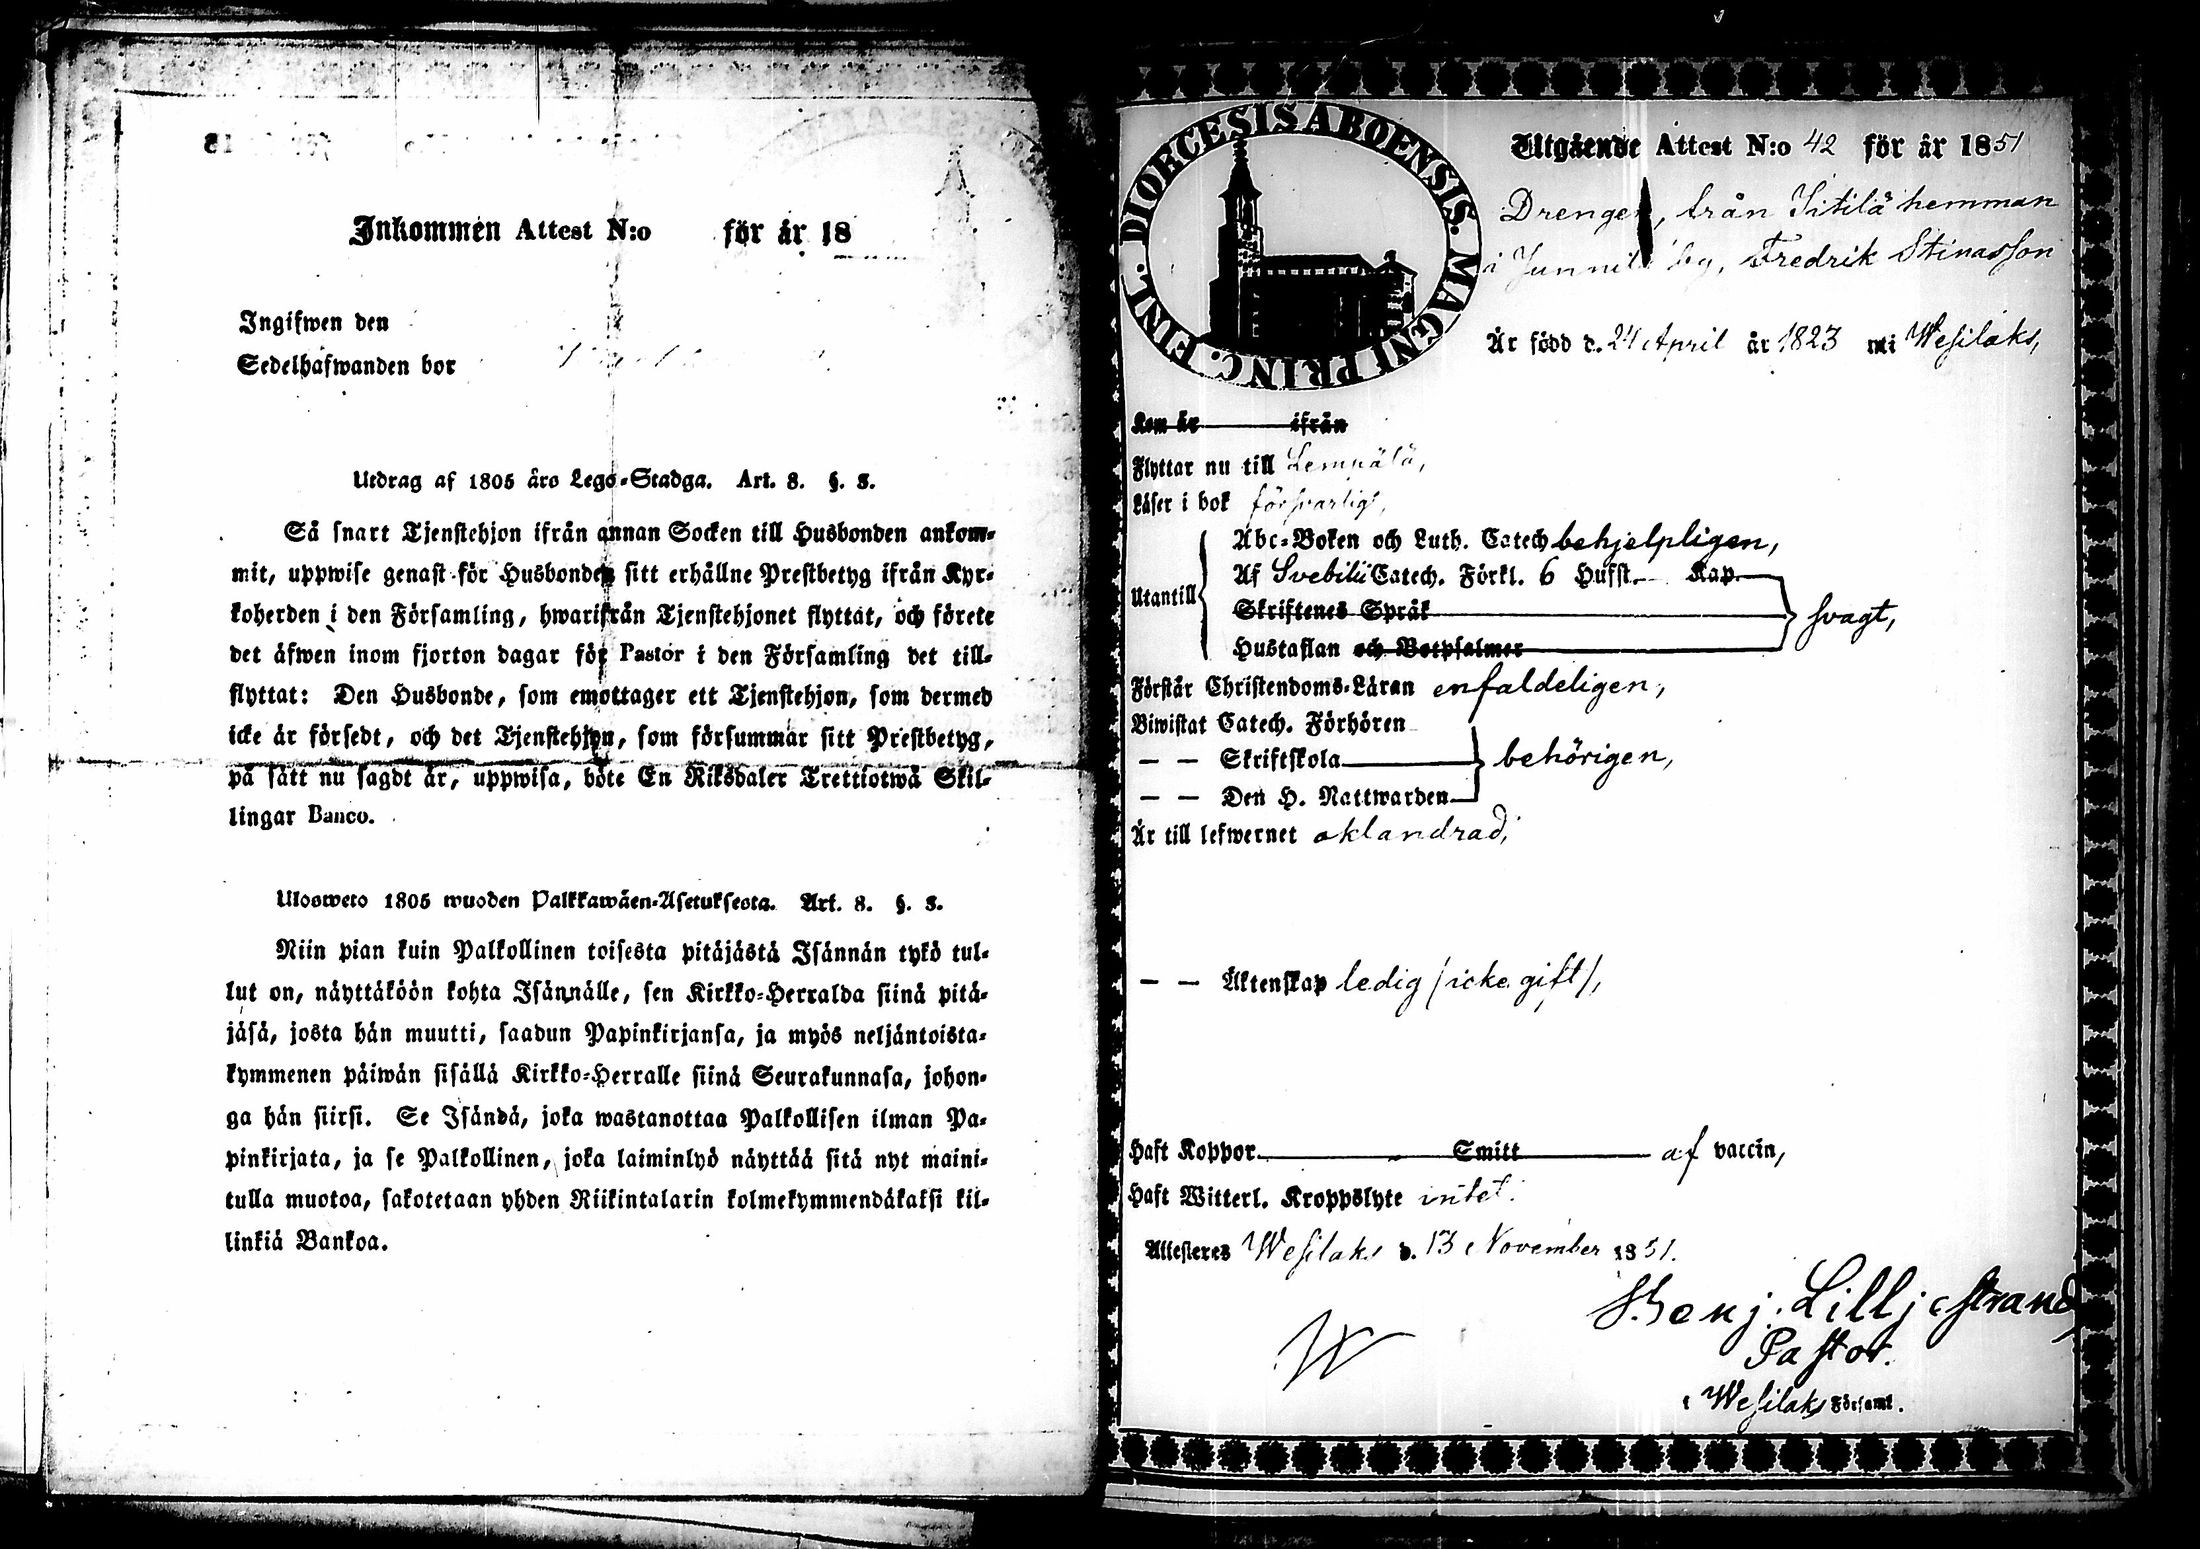 Inkommen Attest N:o för år 18
Ingifwen den
Sedelhafwanden bor
Utdrag af 1805 års Lego-Stadga. Art. 8. §. 3.
Så snart Tjenstehjon ifrån annan Socken till Husbonden ankom-
mit, uppwise genast för Husbonden sitt erhållne Prestbetyg ifrån Kyr-
koherden i den Församling, hwarifrån Tjenstehjonet flyttat, och förete
det äfwen inom fjorton dagar för Pastor i den Församling det till-
flyttat: Den Husbonde, som emottager ett Tjenstehjon, som dermed
icke är försedt, och det Tjenstehjon, som försummar sitt Prestbetyg,
på sätt nu sagdt är, uppwisa, böte En Riksdaler Trettiotwå Skil-
lingar Banco.
Ulosweto 1805 wuoden Palkkawäen-Asetuksesta. Art. 8. §. 3.
Niin pian kuin Palkollinen toisesta pitäjästä Isännän tykö tul-
lut on, näyttäköön kohta Isännälle, sen Kirkko-Herralda siinä pitä-
jäsä, josta hän muutti, saadun Papinkirjansa, ja myös neljäntoista-
kymmenen päiwän sisällä Kirkko-Herralle siinä Seurakunnasa, johon-
ga hän siirsi. Se Isändä, joka wastanottaa Palkollisen ilman Pa-
pinkirjata, ja se Palkollinen, joka laiminlyö näyttää sitä nyt maini-
tulla muotoa, sakotetaan yhden Riikintalarin kolmekymmendäkaksi kil-
linkiä Bankoa.
DIOECESIS ABOENSIS. MAGNI PRINC. FINL.
Utgående Attest N:o 42 för år 1851
Drengen, från Sitilä hemman
i by, Fredrik Stinasson
Är född d. 24 April år 1823 i Wesilaks,
Kom år ifrån
Flyttar nu till Lempälä,
Läser i bok försvarligt,
Utantill
Abc-Boken och Luth. Catech behjelpligen,
Af Svebilii Catech. Förkl. 6 Hufst. Kap.
Skriftenes Språk
svagt,
Hustaflan och Botpsalmer
Förstår Christendoms-Läran enfaldeligen,
Biwistat Catech. Förhören
— — Skriftskola
behörigen,
— — Den H. Nattwarden
Är till lefwernet oklandrad,
— — Äktenskap ledig /icke gift/,
Haft Koppor Smitt af vaccin,
Haft Witterl. Kroppslyte intet.
Attesteres Wesilaks d. 13 November 1851.
Benj. Lilljestrand,
Pastor.
i Wesilaks Församl.